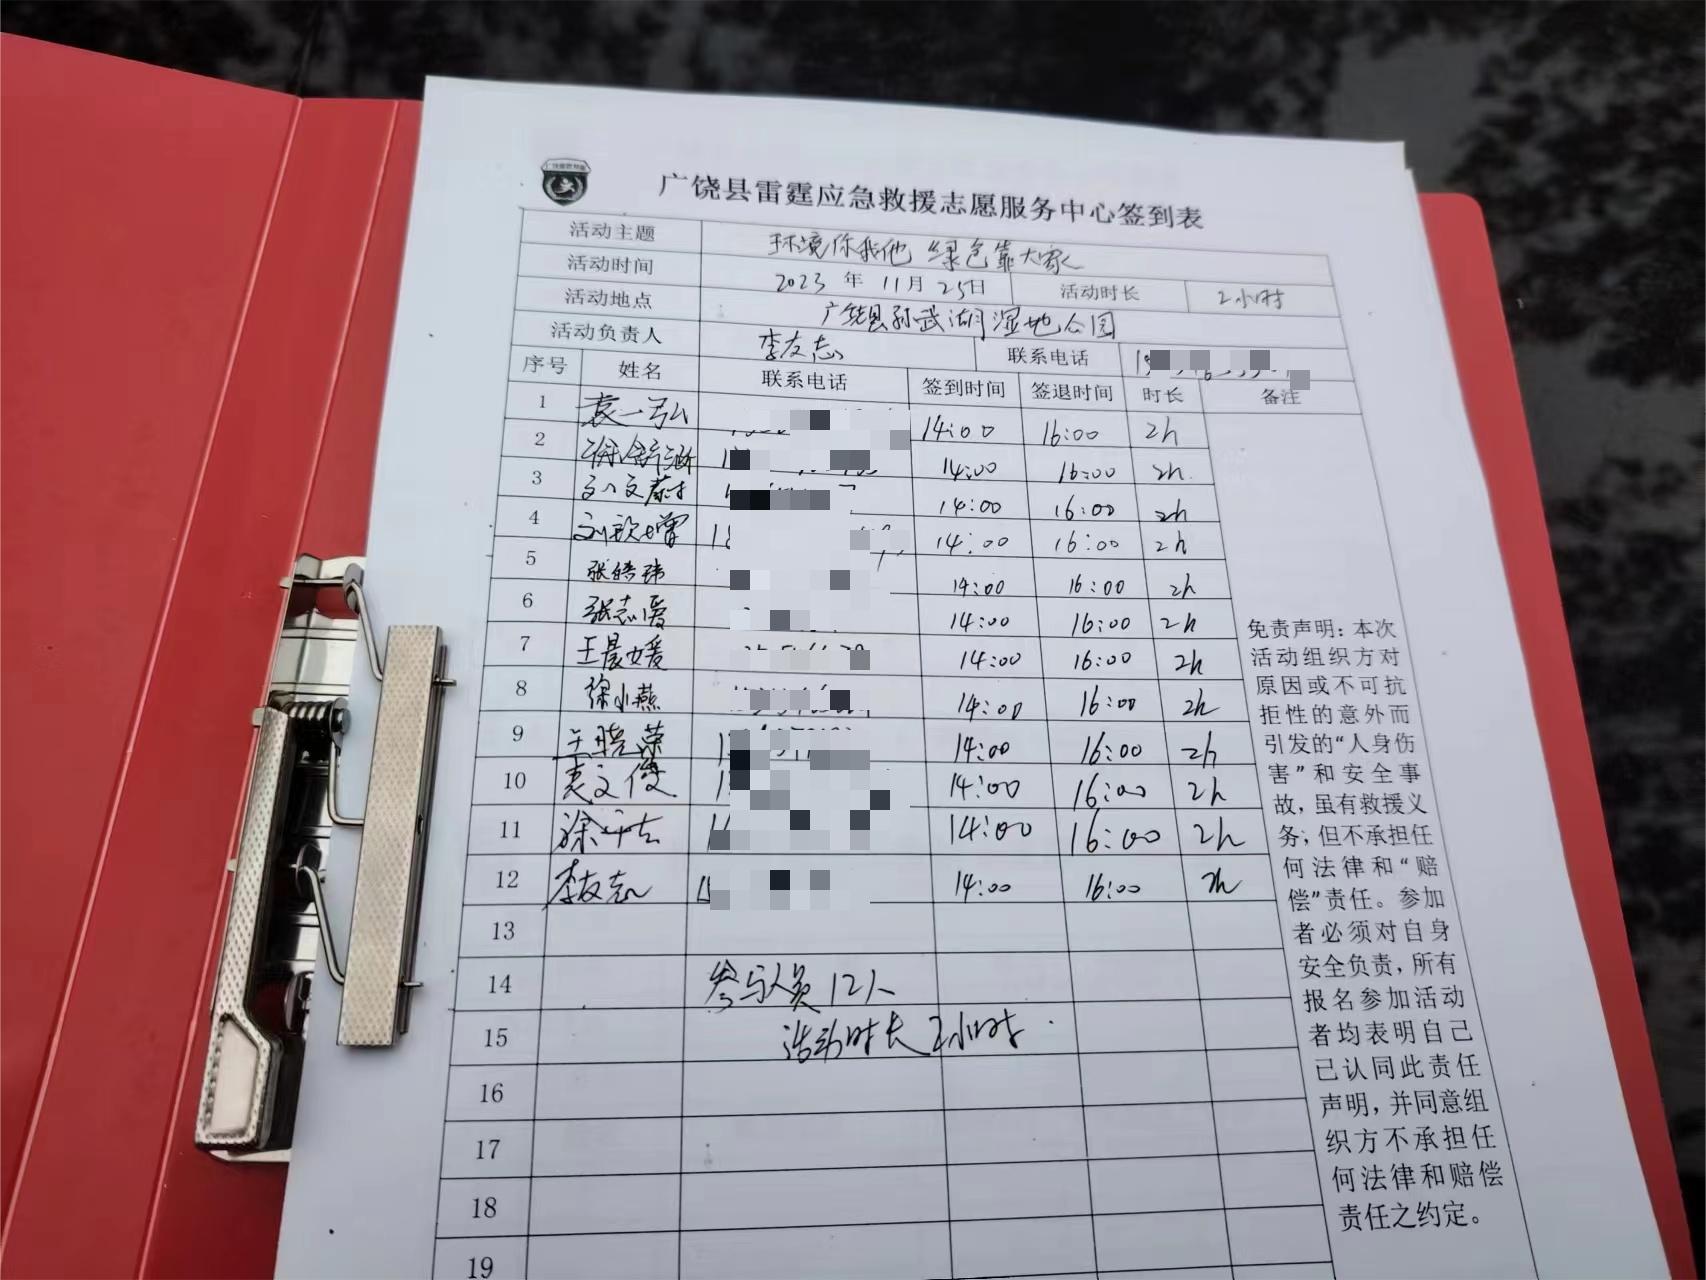 广饶县雷霆应急救援志愿服务中心签到表
活动主题 环境你我他 绿色靠大家
活动时间 2023 年 11 月 25 日 活动时长 2小时
活动地点 广饶县孙武湖湿地公园
活动负责人 李友志 联系电话
序号 姓名 联系电话 签到时间 签退时间 时长 备注
1 袁一弘 14:00 16:00 2h
2 14:00 16:00 2h
3 14:00 16:00 2h
4 14:00 16:00 2h
5 张皓玮 14:00 16:00 2h
6 张志爱 14:00 16:00 2h
7 王晨媛 14:00 16:00 2h
8 徐小燕 14:00 16:00 2h
9 王晓荣 14:00 16:00 2h
10 袁文俊 14:00 16:00 2h
11 14:00 16:00 2h
12 李友志 14:00 16:00 2h
13
14 参与人员12人
15 活动时长2小时
16
17
18
19
免责声明：本次
活动组织方对
原因或不可抗
拒性的意外而
引发的“人身伤
害”和安全事
故，虽有救援义
务；但不承担任
何法律和“赔
偿”责任。参加
者必须对自身
安全负责，所有
报名参加活动
者均表明自己
已认同此责任
声明，并同意组
织方不承担任
何法律和赔偿
责任之约定。